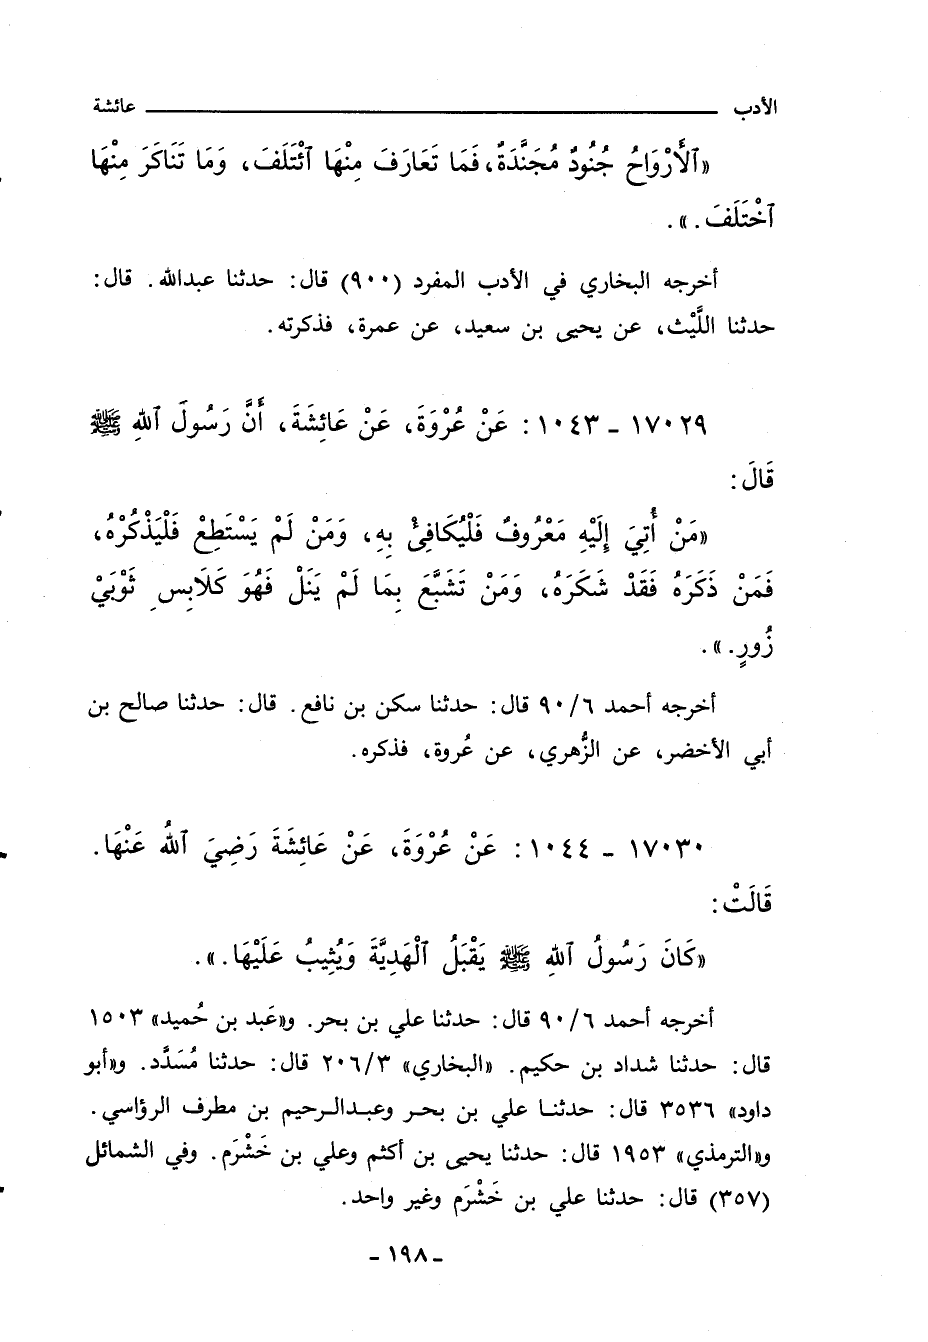 الأدب عائشة
«ٱلْأَرْوَاحُ جُنُودٌ مُجَنَّدَةٌ، فَمَا تَعَارَفَ مِنْهَا ٱئْتَلَفَ، وَمَا تَنَاكَرَ مِنْهَا
ٱخْتَلَفَ.».
أخرجه البخاري في الأدب المفرد (٩٠٠) قال: حدثنا عبدالله. قال:
حدثنا اللَّيْث، عن يحيى بن سعيد، عن عمرة، فذكرته.
١٧٠٢٩ - ١٠٤٣: عَنْ عُرْوَةَ، عَنْ عَائِشَةَ، أَنَّ رَسُولَ ٱللهِ ﷺ
قَالَ:
«مَنْ أُتِيَ إِلَيْهِ مَعْرُوفٌ فَلْيُكَافِئْ بِهِ، وَمَنْ لَمْ يَسْتَطِعْ فَلْيَذْكُرْهُ،
فَمَنْ ذَكَرَهُ فَقَدْ شَكَرَهُ، وَمَنْ تَشَبَّعَ بِمَا لَمْ يَنَلْ فَهُوَ كَلَابِسِ ثَوْبَيْ
زُورٍ.».
أخرجه أحمد ٩٠/٦ قال: حدثنا سكن بن نافع. قال: حدثنا صالح بن
أبي الأخضر، عن الزُّهري، عن عُروة، فذكره.
١٧٠٣٠ - ١٠٤٤: عَنْ عُرْوَةَ، عَنْ عَائِشَةَ رَضِيَ ٱللهُ عَنْهَا.
قَالَتْ:
«كَانَ رَسُولُ ٱللهِ ﷺ يَقْبَلُ ٱلْهَدِيَّةَ وَيُثِيبُ عَلَيْهَا.».
أخرجه أحمد ٩٠/٦ قال: حدثنا علي بن بحر. و«عَبد بن حُميد» ١٥٠٣
قال: حدثنا شداد بن حكيم. «البخاري» ٢٠٦/٣ قال: حدثنا مُسَدَّد. و«أبو
داود» ٣٥٣٦ قال: حدثنا علي بن بحر وعبدالرحيم بن مطرف الرؤاسي.
و«الترمذي» ١٩٥٣ قال: حدثنا يحيى بن أكثم وعلي بن خَشْرَم. وفي الشمائل
(٣٥٧) قال: حدثنا علي بن خَشْرَم وغير واحد.
- ١٩٨ -